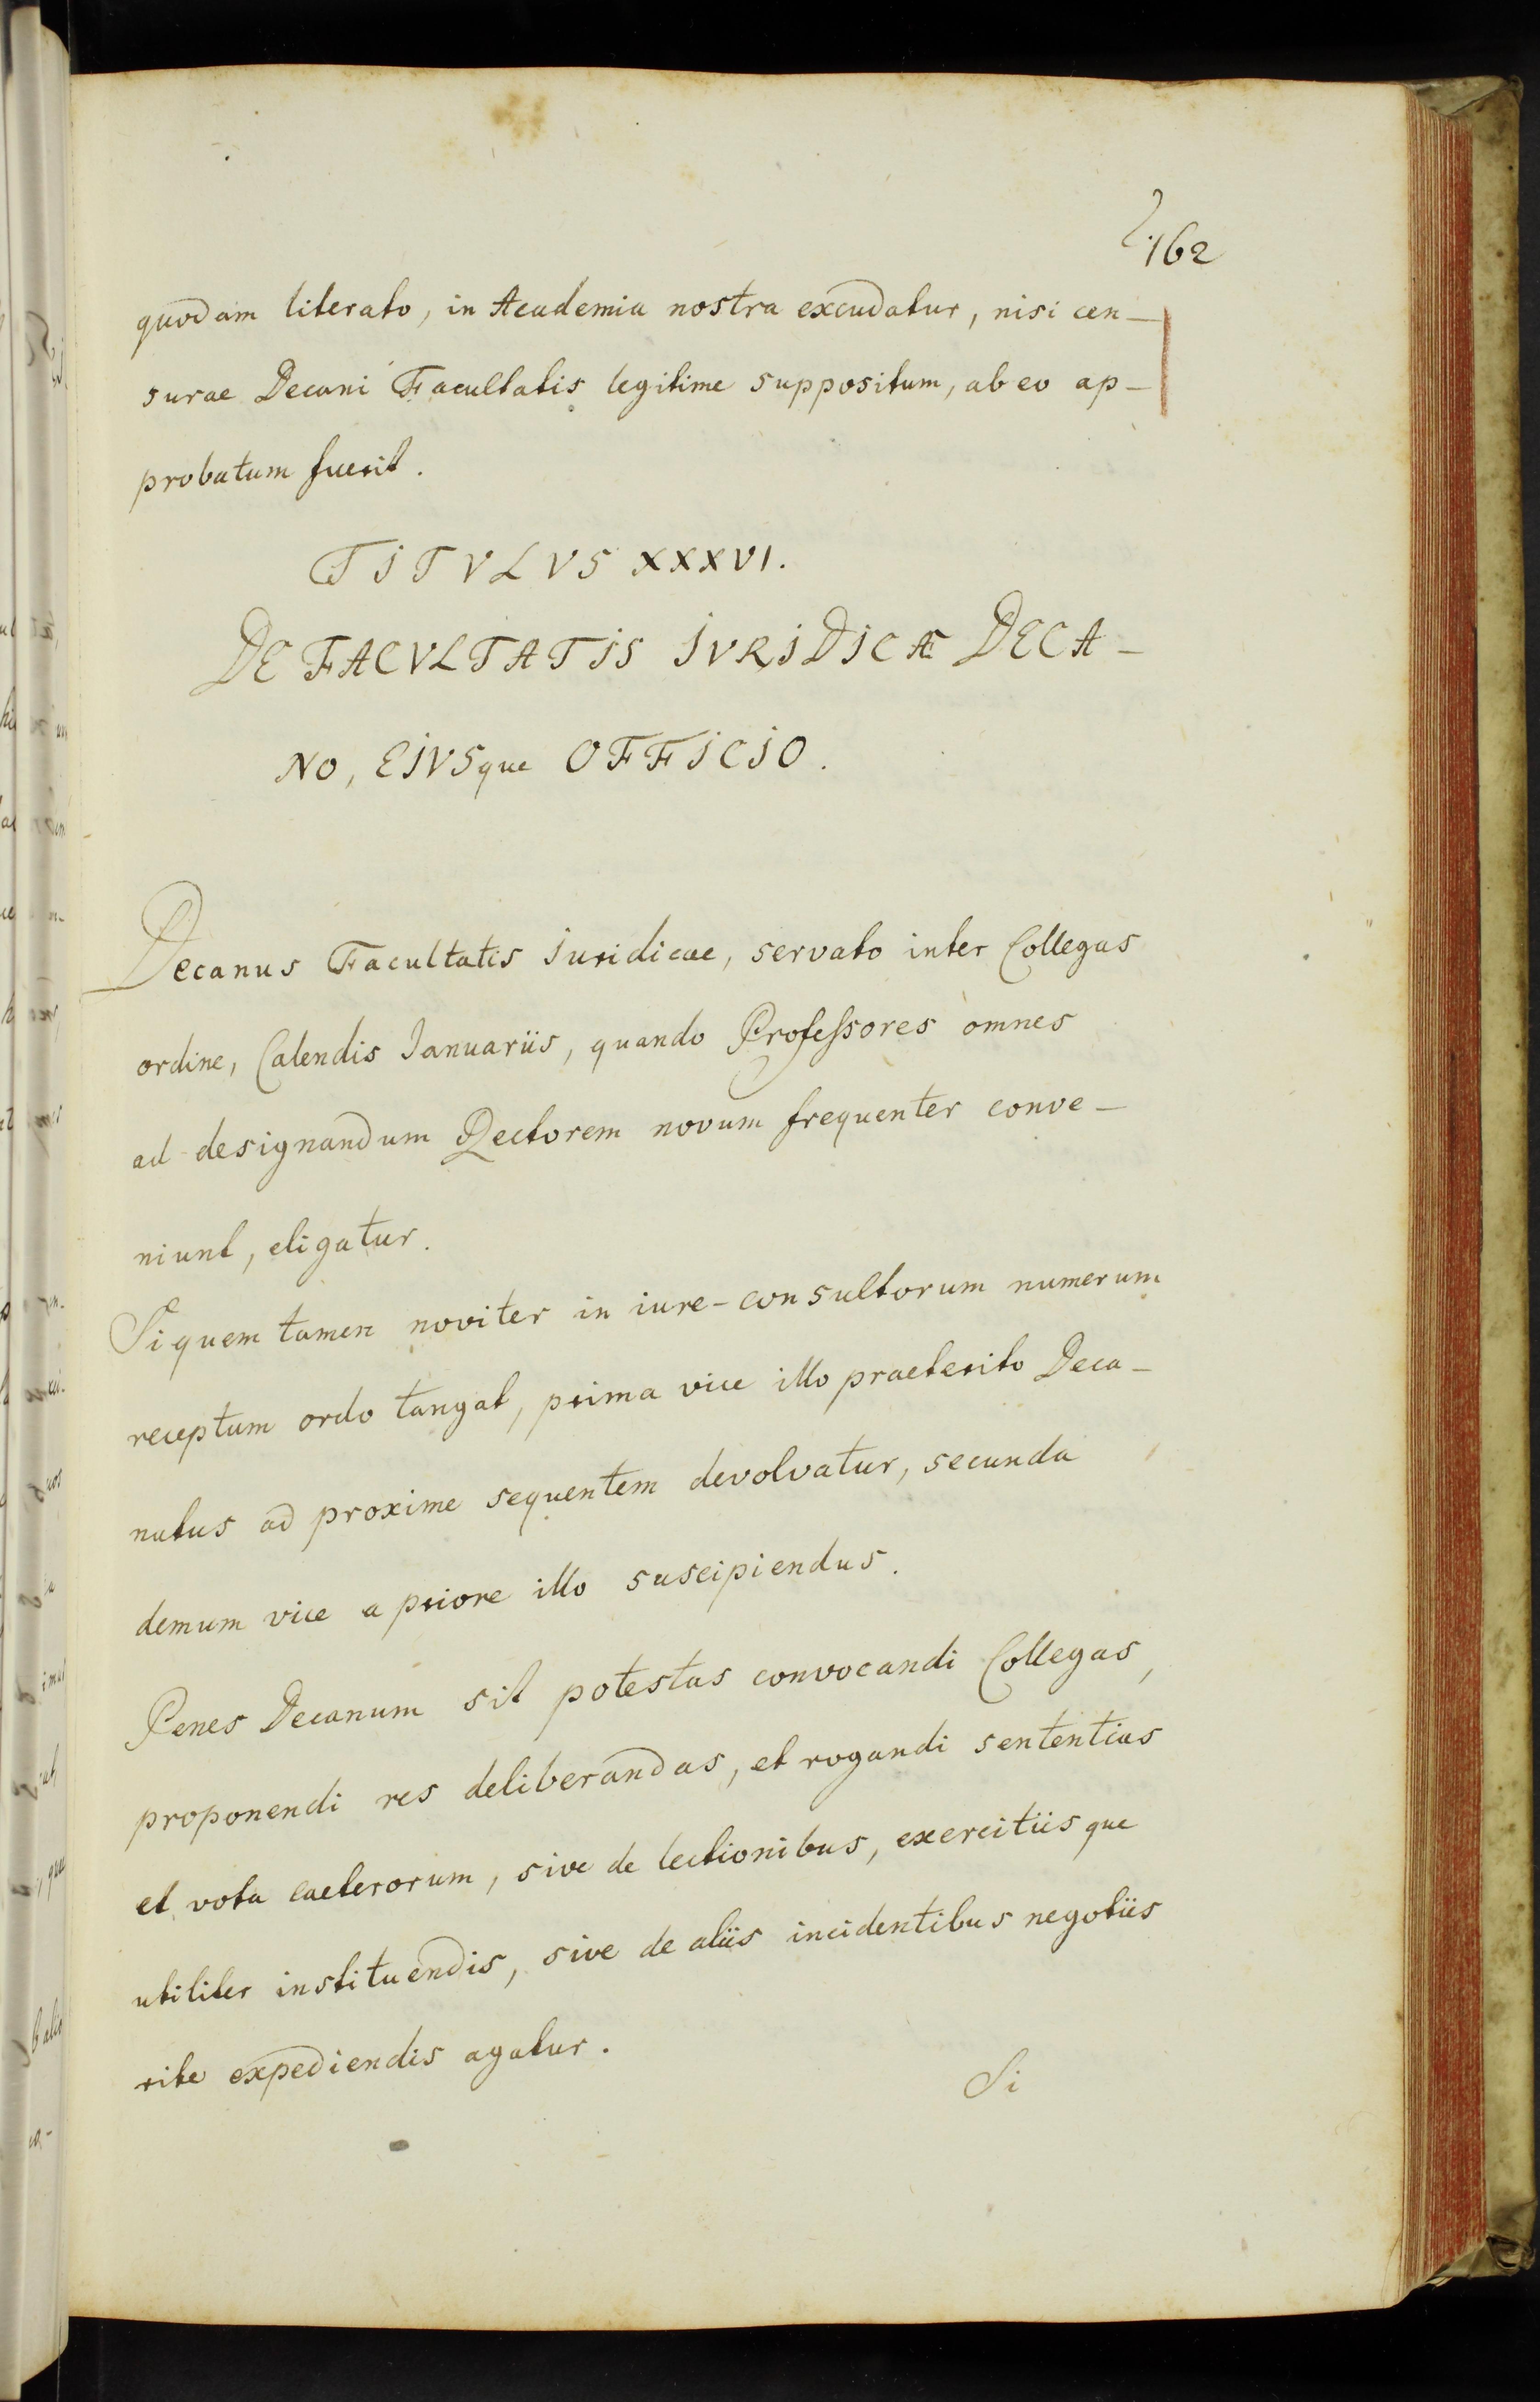 162
quodam literato, in Academia nostra excudatur, nisi cen-
surae Decani Facultatis legitime suppositum, ab eo ap-
probatum fuerit.
TITVLVS XXXVI.
DE FACVLTATIS IVRIDICÆ DECA-
NO, EIVSque OFFICIO.
Decanus Facultatis Iuridicae, servato inter Collegas
ordine, Calendis Ianuariis, quando Professores omnes
ad designandum Rectorem novum frequenter conve-
niunt, eligatur.
Si quem tamen noviter in iure-consultorum numerum
receptum ordo tangat, prima vice illo praeterito Deca-
natus ad proxime sequentem devolvatur, secunda
demum vice a priore illo suscipiendus.
Penes Decanum sit potestas convocandi Collegas,
proponendi res deliberandas, et rogandi sententias
et vota caeterorum, sive de lectionibus, exercitiisque
utiliter instituendis, sive de aliis incidentibus negotiis
rite expediendis agatur.
Si